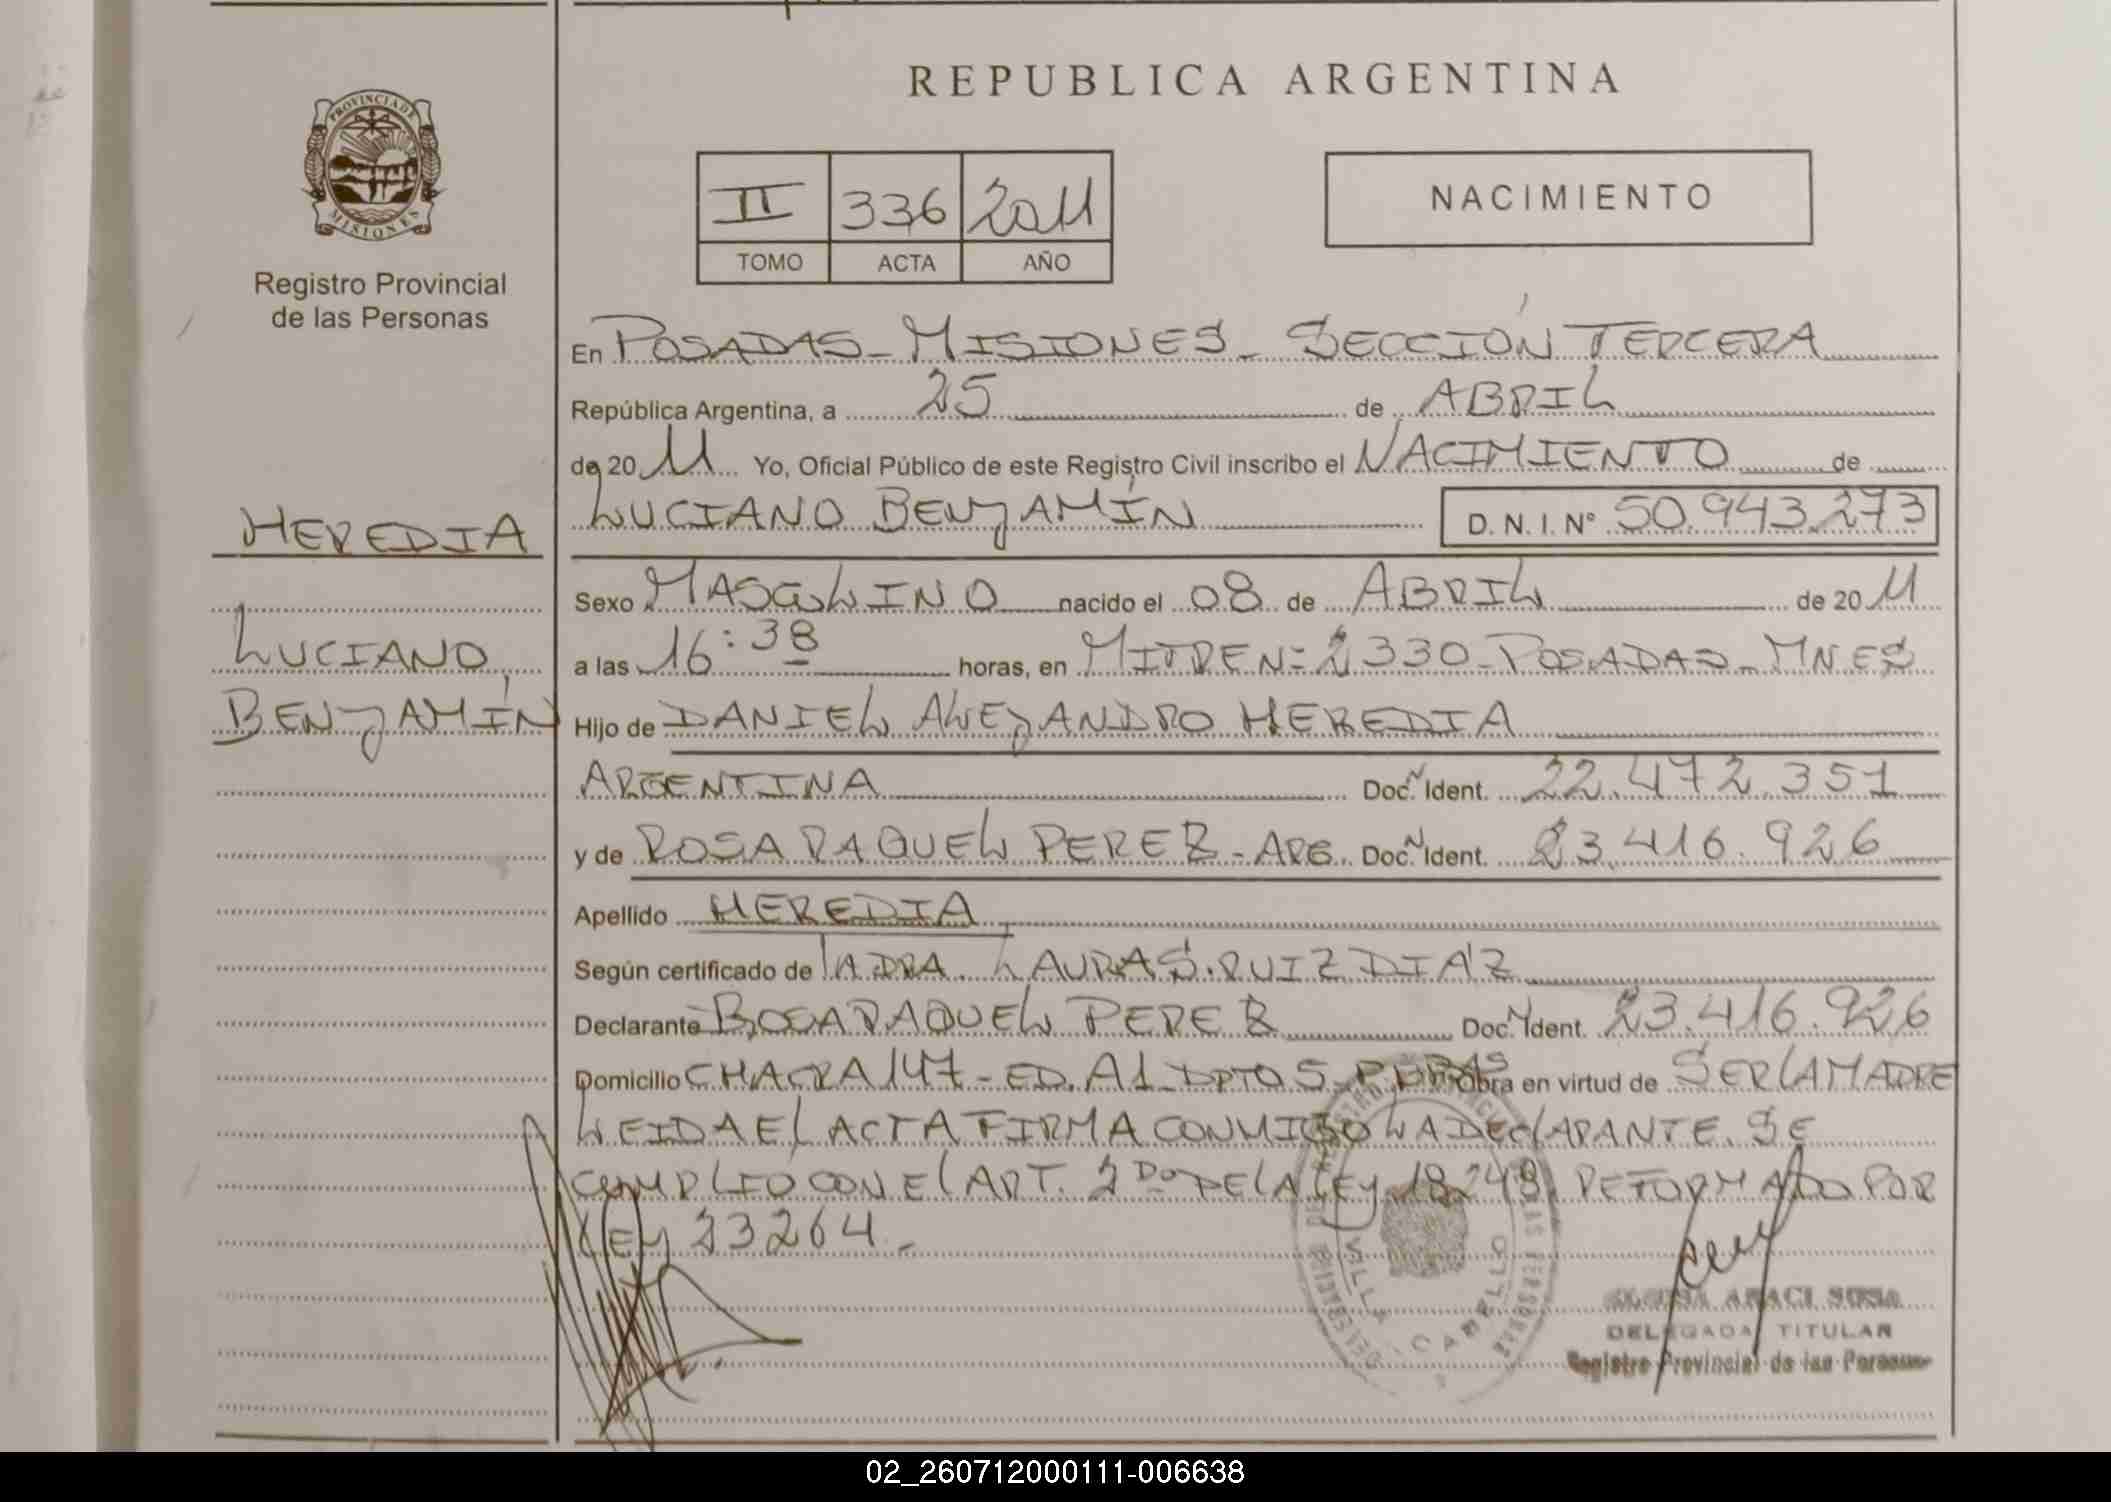 REPUBLICA ARGENTINA
PROVINCIA DE
MISIONES
Registro Provincial
de las Personas
II 336 2011
TOMO ACTA AÑO
NACIMIENTO
En POSADAS - MISIONES - SECCIÓN TERCERA
República Argentina, a 25 de ABRIL
de 20 11 Yo, Oficial Público de este Registro Civil inscribo el NACIMIENTO de
LUCIANO BENJAMÍN D. N. I. Nº 50.943.273
HEREDIA
LUCIANO
BENJAMÍN
Sexo MASCULINO nacido el 08 de ABRIL de 20 11
a las 16:38 horas, en MITRE Nº 2330 - POSADAS - MNES
Hijo de DANIEL ALEJANDRO HEREDIA
ARGENTINA Doc. Ident. 22.472.351
y de ROSA RAQUEL PEREZ - ARG. Doc. Ident. 23.416.926
Apellido HEREDIA
Según certificado de la DRA. LAURA S. RUIZ DIAZ
Declarante ROSA RAQUEL PEREZ Doc. Ident. 23.416.926
Domicilio CHACRA 147 - ED. A1 - DPTO 5 - PDAS Obra en virtud de SER LA MADRE
LEIDA EL ACTA FIRMA CONMIGO LA DECLARANTE. SE
CUMPLIO CON EL ART. 2DO DE LA LEY 18248 REFORMADO POR
LEY 23264.-
VILLA CABELLO
ARACI SOSA
DELEGADA TITULAR
Registro Provincial de las Personas
02_260712000111-006638